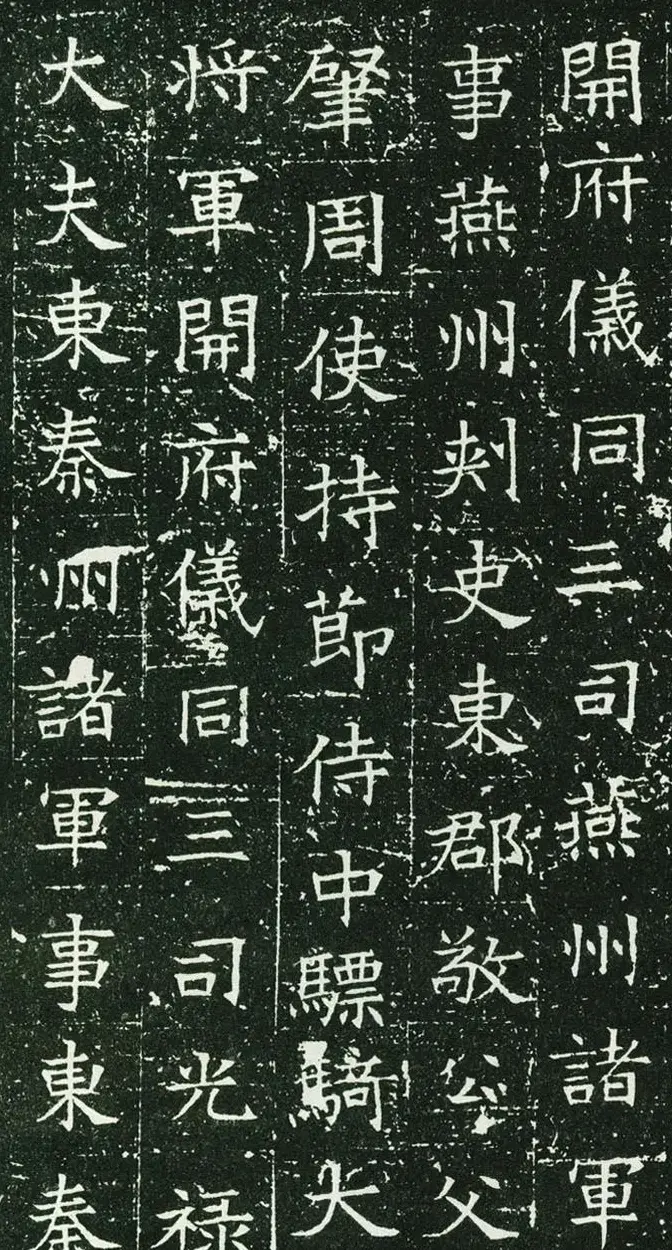 開府儀同三司燕州諸軍
事燕州刾史東郡敬公父
肇周使持莭侍中驃騎大
将軍開府儀同三司光禄
大夫東秦州諸軍事東秦